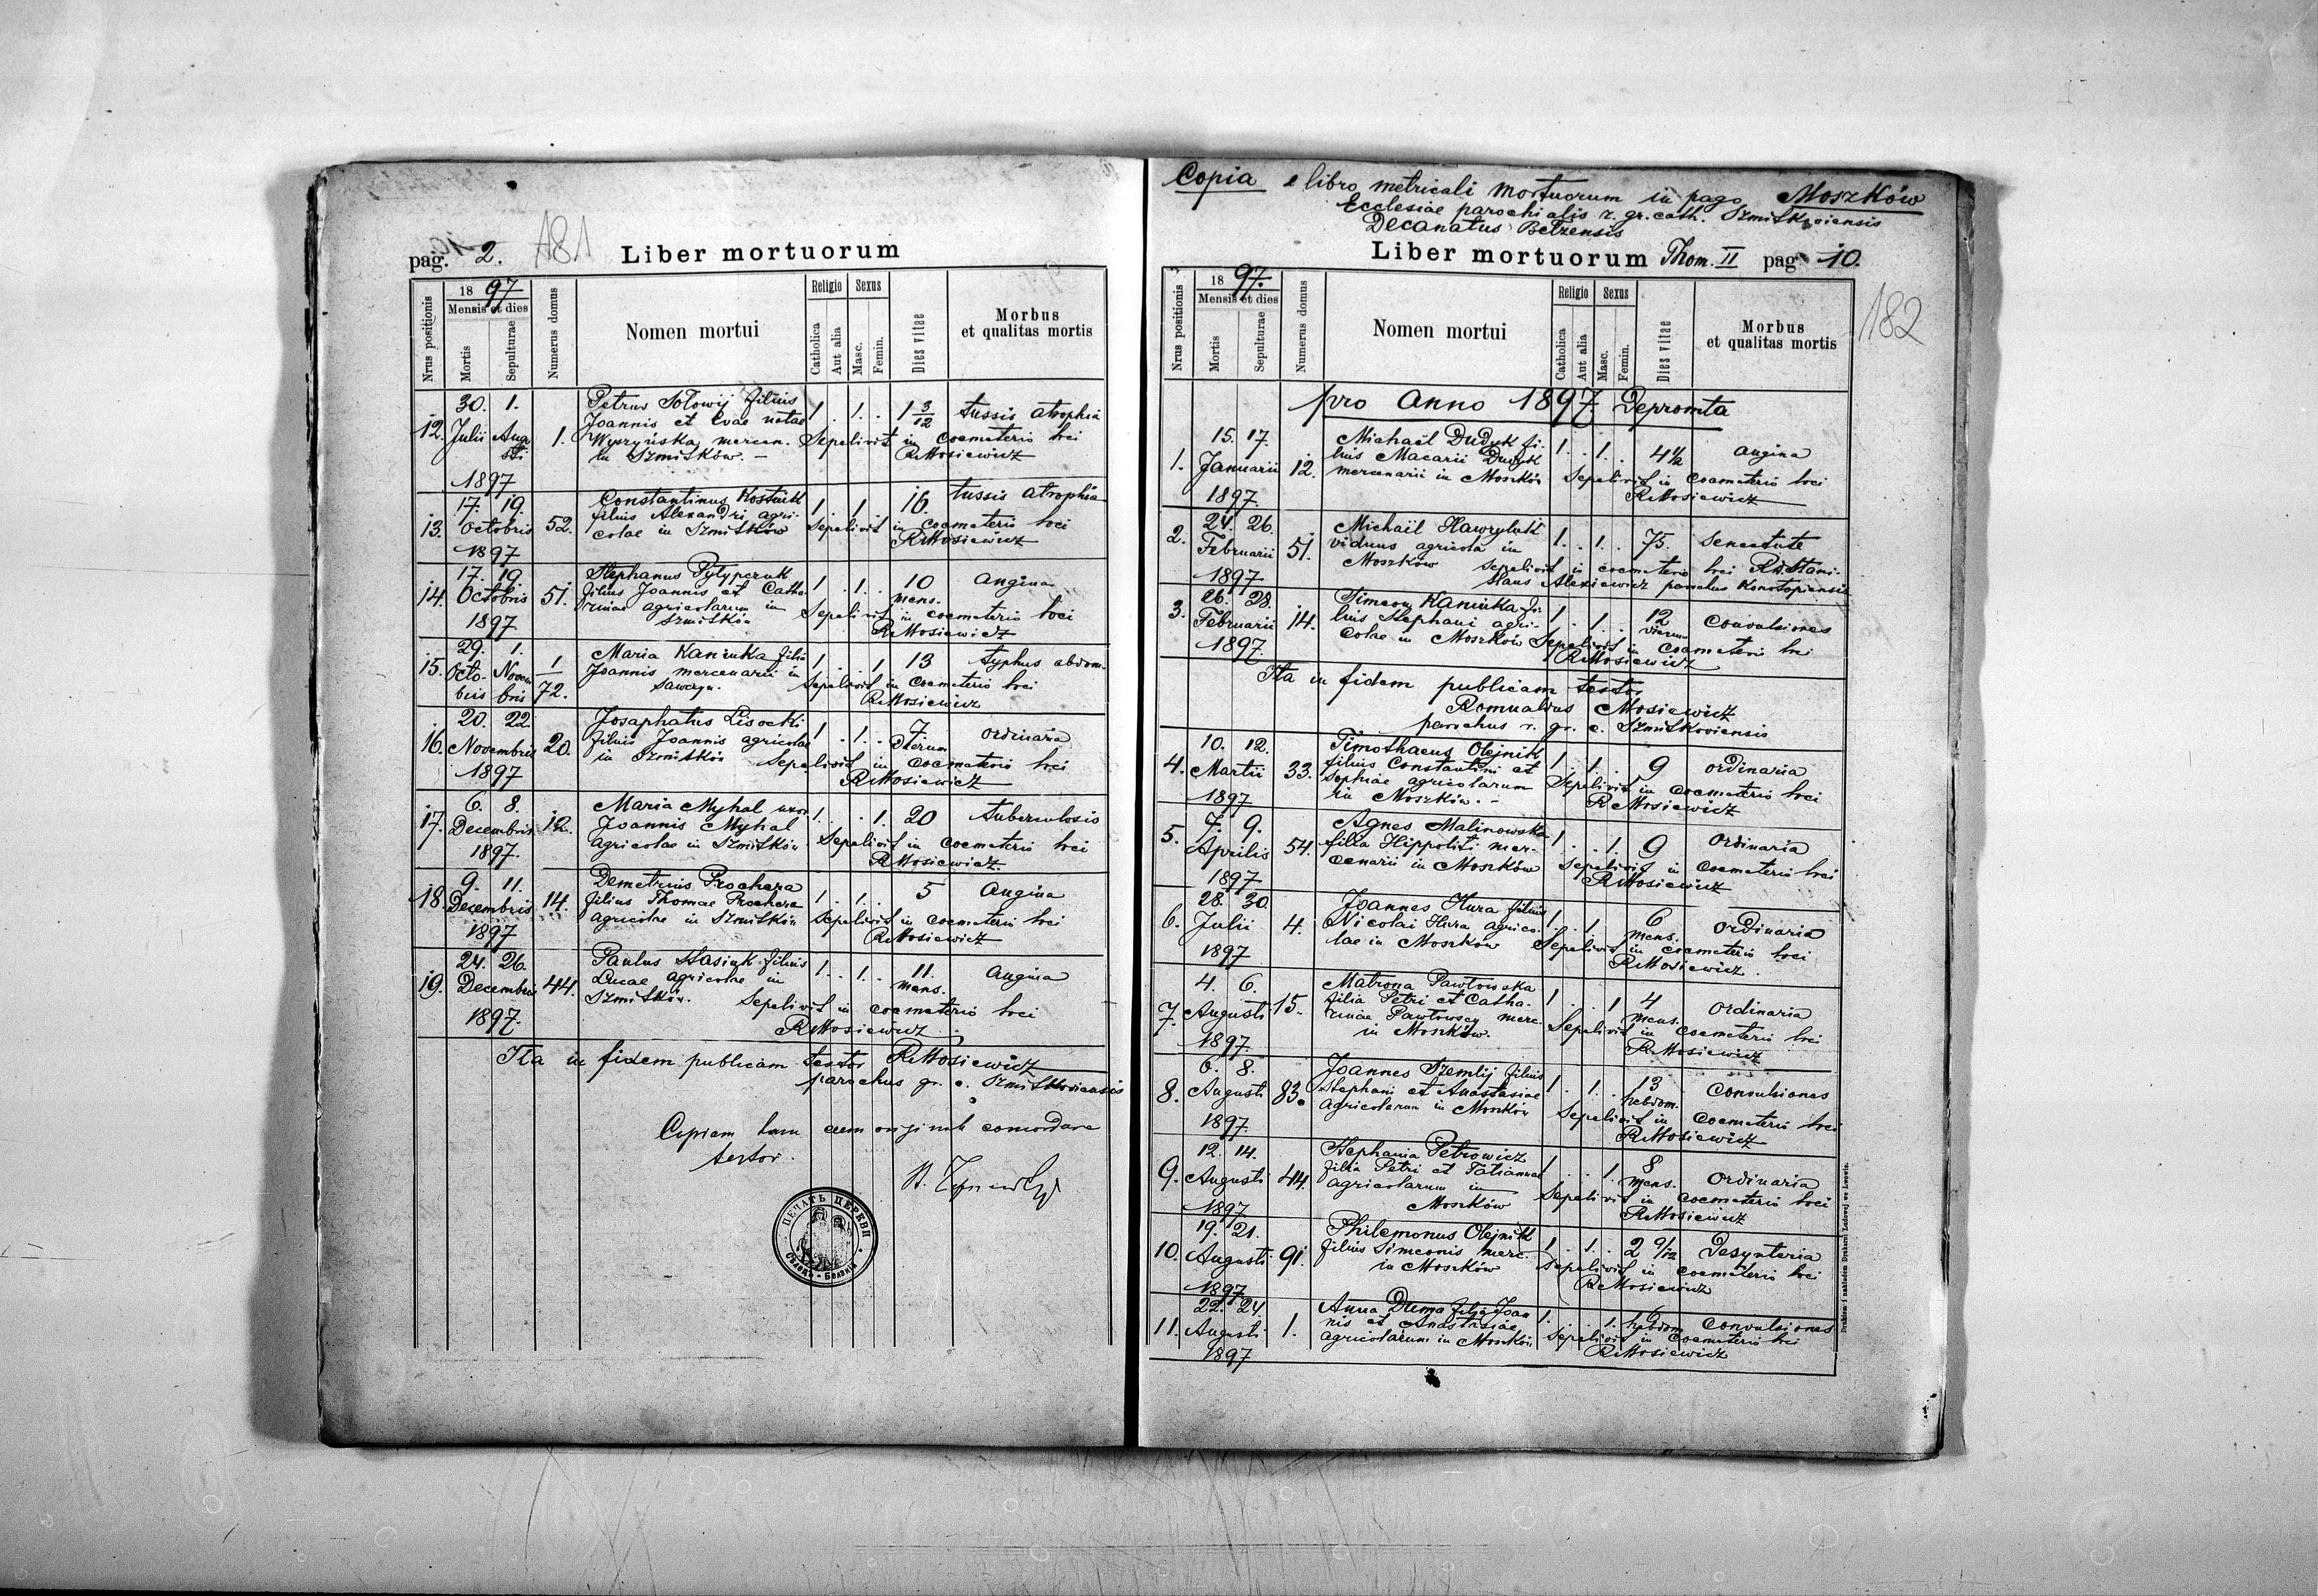 pag. 2. 181 Liber mortuorum
Nrus positionis
18 97
Mensis et dies
Mortis
Sepulturae
Numerus domus
Nomen mortui
Religio
Catholica
Aut alia
Sexus
Masc.
Femin.
Dies vitae
Morbus
et qualitas mortis
30. 1. Petrus Sołowij filius
12. Julii Augusti 1. Joannis et Evae natae 1 . 1. . 1 3/12 tussis atrophia
Wyszyńska mercen. Sepelivit in coemeterio loci
in Szmitków. – RMosiewicz
1897
17. 19. Constantinus Kostiuk 1. . 1. . 16. tussis atrophia
13. Octobris 52. filius Alexandri agri- Sepelivit in coemeterio loci
1897 colae in Szmitków RMosiewicz
17. 19. Stephanus Pylypczuk
14. Octobris 51. filius Joannis et Catha- 1 . 1. . 10 mens. angina
rinae agricolarum in Sepelivit in coemeterio loci
1897 Szmitków RMosiewicz
29. 1. Maria Kaniuka filia 1. . . 1. 13 typhus abdom.
15. Octobris Novembris 1/72. Joannis mercenarii in Sepelivit in coemeterio loci
RMosiewicz
20. 22. Josaphatus Lisocki
16. Novembris 20. filius Joannis agricolae 1 . 1. . 7 dierum ordinaria
1897 in Szmitków Sepelivit in coemeterio loci
RMosiewicz
6. 8. Maria Myhal uxor 1. . . 1. 20 tuberculosis
17. Decembris 12. Joannis Myhal
1897. agricolae in Szmitków Sepelivit in coemeterio loci
RMosiewicz.
9. 11. Demetrius Prochera
18. Decembris 14. filius Thomae Prochera 1. . 1. . 5 Angina
agricolae in Szmitków Sepelivit in coemeterio loci
1897 RMosiewicz
24. 26. Paulus Stasiuk filius 1. . 1. . 11. mens. angina
19. Decembris 44. Lucae agricolae in
1897. Szmitków. Sepelivit in coemeterio loci
RMosiewicz
Ita in fidem publicam testor RMosiewicz
parochus gr. c. Szmitkoviensis
Copiam hanc cum originali concordare
testor.
ПЕЧАТЬ ЦЕРКВИ
Copia e libro metricali mortuorum in pago Moszków
Ecclesiae parochialis r. gr. cath. Szmitkoviensis
Decanatus Belzensis
Liber mortuorum Thom. II pag. 10.
182
Nrus positionis
18 97.
Mensis et dies
Mortis
Sepulturae
Numerus domus
Nomen mortui
Religio
Catholica
Aut alia
Sexus
Masc.
Femin.
Dies vitae
Morbus
et qualitas mortis
pro anno 1897 Depromta
15. 17. Michaël Dudyk fi- 1. . 1. . 4 1/2 angina
1. Januarii 12. lius Macarii Dudyk
1897 mercenarii in Moszków Sepelivit in coemeterio loci
RMosiewicz
24. 26. Michaël Hawryluk 1. . 1. . 75. Senectute
2. Februarii 51. viduus agricola in
1897 Moszków sepelivit in coemeterio loci R. Stani-
slaus Alexiewicz parochus Konotopiensis
26. 28. Simeon Kaniuka fi- 1. . 1. . 12 dierum Convulsiones
3. Februarii 14. lius Stephani agri-
1897. colae in Moszków Sepelivit in coemeterio loci
RMosiewicz
Ita in fidem publicam testor
Romualdus Mosiewicz
parochus r. gr. c. Szmitkoviensis
10. 12. Timothaeus Olejnik
4. Martii 33. filius Constantini et 1. . 1. . 9 ordinaria
Sophiae agricolarum Sepelivit in coemeterio loci
1897 in Moszków. – RMosiewicz
7. 9. Agnes Malinowska
5. Aprilis 54. filia Hippoliti mer- 1 . . 1. 9 Ordinaria
1897 cenarii in Moszków Sepelivit in coemeterio loci
RMosiewicz
28. 30. Joannes Hura filius
6. Julii 4. Nicolai Hura agrico- 1. . 1. . 6 mens. ordinaria
1897 lae in Moszków Sepelivit in coemeterio loci
RMosiewicz.
4. 6. Matrona Pawłowska
7. Augusti 15. filia Petri et Catha- 1 . . 1 4 mens. ordinaria
rinae Pawłowscy merc. Sepelivit in coemeterio loci
1897 in Moszków. RMosiewicz
6. 8. Joannes Szemlij filius
8. Augusti 83. Stephani et Anastasiae 1 . 1. . 13 hebdom. Convulsiones
1897 agricolarum in Moszków Sepelivit in coemeterio loci
RMosiewicz
12. 14. Stephania Petrowicz
9. Augusti 44. filia Petri et Tatiannae 1 . . 1. 8 mens. Ordinaria
agricolarum in Sepelivit in coemeterio loci
1897 Moszków RMosiewicz
19. 21. Philemonus Olejnik
10. Augusti 91. filius Simeonis merc. 1 . 1. . 2 9/12 Desynteria
1897 in Moszków Sepelivit in coemeterio loci
RMosiewicz
22. 24. Anna Duma filia Joan-
11. Augusti 1. nis et Anastasiae 1. . . 1. 6 hebdom. convulsiones
1897 agricolarum in Moszków Sepelivit in coemeterio loci
RMosiewicz
Drukiem i nakładem Drukarni Ludowej we Lwowie.